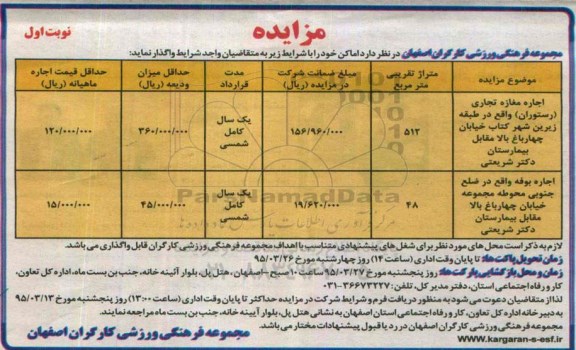 مزایده
نوبت اول
مجموعه فرهنگی ورزشی کارگران اصفهان در نظر دارد اماکن خود را با شرایط زیر به متقاضیان واجد شرایط واگذار نماید:
موضوع مزایده | متراژ تقریبی متر مربع | مبلغ ضمانت شرکت در مزایده (ریال) | مدت قرارداد | حداقل میزان ودیعه (ریال) | حداقل قیمت اجاره ماهیانه (ریال)
اجاره مغازه تجاری (رستوران) واقع در طبقه زیرین شهر کتاب خیابان چهارباغ بالا مقابل بیمارستان دکتر شریعتی | ۵۱۲ | ۱۵۶/۹۶۰/۰۰۰ | یک سال کامل شمسی | ۳۶۰/۰۰۰/۰۰۰ | ۱۲۰/۰۰۰/۰۰۰
اجاره بوفه واقع در ضلع جنوبی محوطه مجموعه خیابان چهارباغ بالا مقابل بیمارستان دکتر شریعتی | ۴۸ | ۱۹/۶۲۰/۰۰۰ | یک سال کامل شمسی | ۴۵/۰۰۰/۰۰۰ | ۱۵/۰۰۰/۰۰۰
لازم به ذکر است محل های مورد نظر برای شغل های پیشنهادی متناسب با اهداف مجموعه فرهنگی ورزشی کارگران قابل واگذاری می باشد.
زمان تحویل پاکت ها: تا پایان وقت اداری (ساعت ۱۴) روز چهارشنبه مورخ ۹۵/۰۳/۲۶
زمان و محل بازگشایی پاکت ها: روز پنجشنبه مورخ ۹۵/۰۳/۲۷ ساعت ۱۰ صبح - اصفهان، هتل پل، بلوار آئینه خانه، جنب بن بست ماه، اداره کل تعاون،
کار و رفاه اجتماعی استان، دفتر مدیر کل، تلفن: ۳۶۶۷۳۲۲۷-۰۳۱
لذا از متقاضیان دعوت می شود به منظور دریافت فرم و شرایط شرکت در مزایده حداکثر تا پایان وقت اداری (ساعت ۱۳:۰۰) روز پنجشنبه مورخ ۹۵/۰۳/۱۳
به دبیرخانه اداره کل تعاون، کار و رفاه اجتماعی استان اصفهان به نشانی هتل پل، بلوار آئینه خانه، جنب بن بست ماه مراجعه نمایند.
مجموعه فرهنگی ورزشی کارگران اصفهان در رد یا قبول پیشنهادات مختار می باشد.
www.kargaran-s-esf.ir
مجموعه فرهنگی ورزشی کارگران اصفهان
ParsNamadData